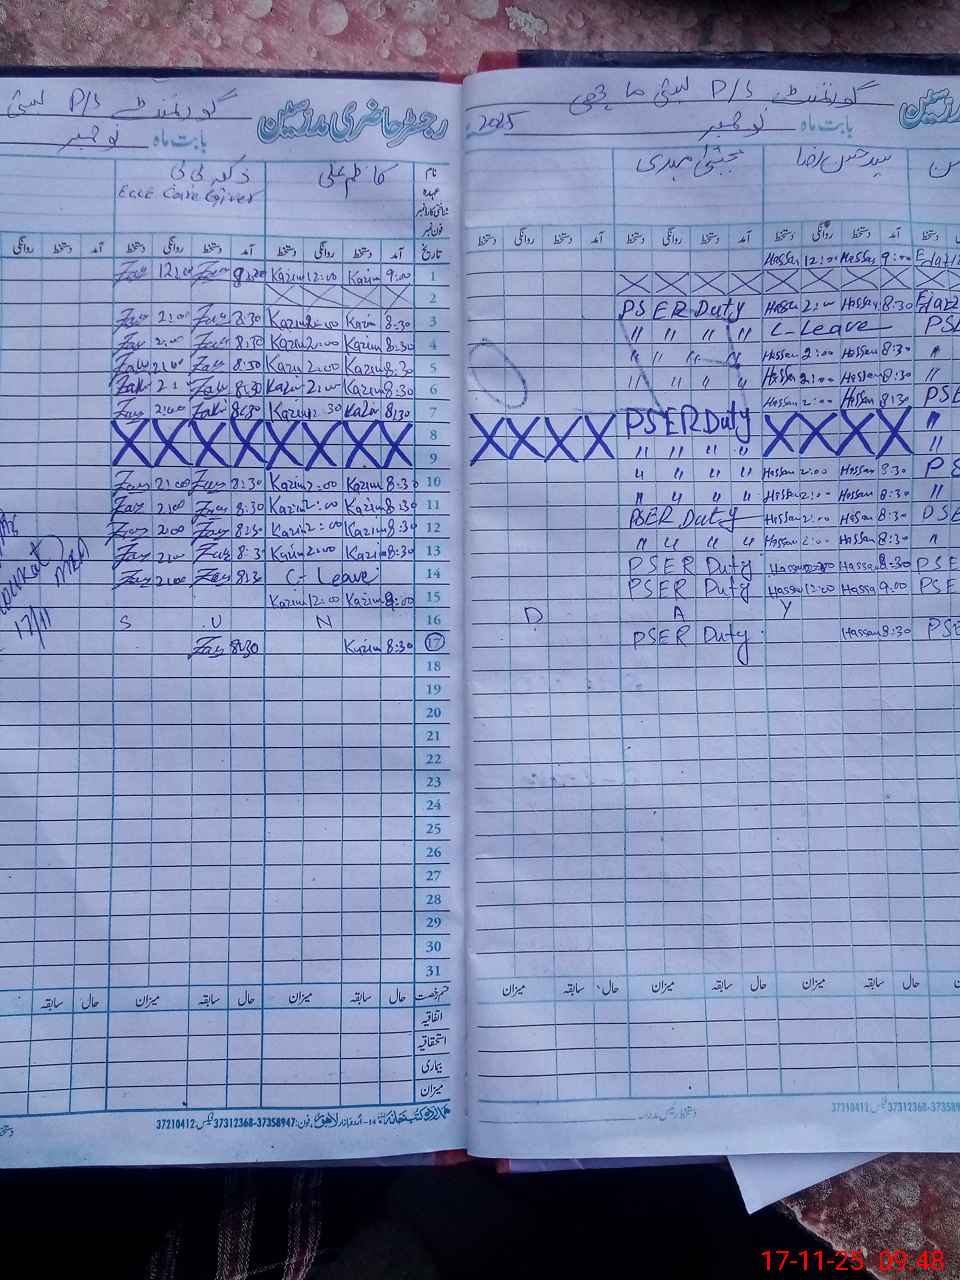 گورنمنٹ P/S بستی
رجسٹر حاضری مدرسین
بابت ماہ نومبر
نام کاظم علی ذکیہ بی بی
عہدہ Ecce Care Giver
شناختی کارڈ نمبر
فون نمبر
تاریخ آمد دستخط روانگی دستخط آمد دستخط روانگی دستخط آمد دستخط روانگی
1 9:00 Kazim 12:00 Kazim 9:00 Zay 12:00 Zay
2
3 8:30 Kazim 2:00 Kazim 8:30 Zay 2:00 Zay
4 8:30 Kazim 2:00 Kazim 8:30 Zay 2:00 Zay
5 8:30 Kazim 2:00 Kazim 8:30 Zay 2:00 Zay
6 8:30 Kazim 2:00 Kazim 8:30 Zay 2:00 Zay
7 8:30 Kazim 12:30 Kazim 8:30 Zay 2:00 Zay
8 X X X X X X X X
9
10 8:30 Kazim 2:00 Kazim 8:30 Zay 2:00 Zay
11 8:30 Kazim 2:00 Kazim 8:30 Zay 2:00 Zay
12 8:30 Kazim 2:00 Kazim 8:30 Zay 2:00 Zay
13 8:30 Kazim 2:00 Kazim 8:30 Zay 2:00 Zay
14 C-Leave 8:30 Zay 2:00 Zay
15 9:00 Kazim 12:00 Kazim
16 S U N
17 8:30 Kazim 8:30 Zay
18
19
20
21
22
23
24
25
26
27
28
29
30
31
قسم رخصت حال سابقہ میزان حال سابقہ میزان حال سابقہ
اتفاقیہ
استحقاقیہ
بیماری
میزان
17/11
اردو بازار لاہور فون: 37358947-37312368 فیکس: 37210412
گورنمنٹ P/S بستی
بابت ماہ نومبر 2025
سید حسن رضا مجتبیٰ مہدی
آمد دستخط روانگی دستخط آمد دستخط روانگی دستخط آمد دستخط روانگی دستخط
9:00 Hassan 12:00 Hassan
8:30 Hassan 2:00 Hassan PSER Duty
C-Leave " " " "
8:30 Hassan 2:00 Hassan " " " "
8:30 Hassan 2:00 Hassan " " " "
8:30 Hassan 2:00 Hassan PSER Duty
X X X X X X X X
" " " "
8:30 Hassan 2:00 Hassan " " " "
8:30 Hassan 2:00 Hassan " " " "
8:30 Hassan 2:00 Hassan PSER Duty
8:30 Hassan 2:00 Hassan " " " "
8:30 Hassan 2:00 Hassan PSER Duty
9:00 Hassan 12:00 Hassan PSER Duty
D A Y
8:30 Hassan PSER Duty
حال سابقہ میزان حال سابقہ میزان حال سابقہ میزان
37210412
17-11-25 09:48